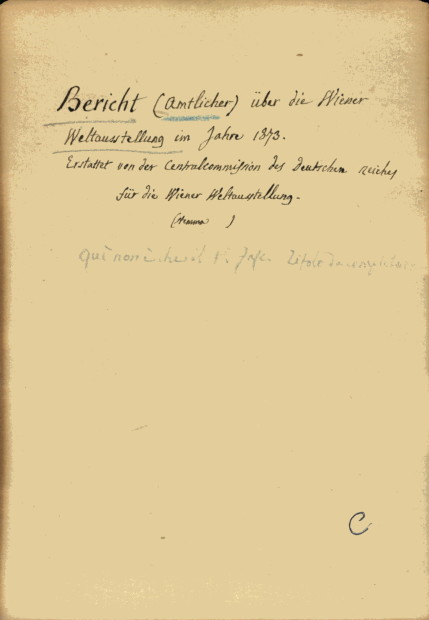 Bericht (Amtlicher) über die Wiener
Weltausstellung im Jahre 1873.
Erstattet von der Centralcommission des Deutschen Reiches
für die Wiener Weltausstellung.
qui non è
C